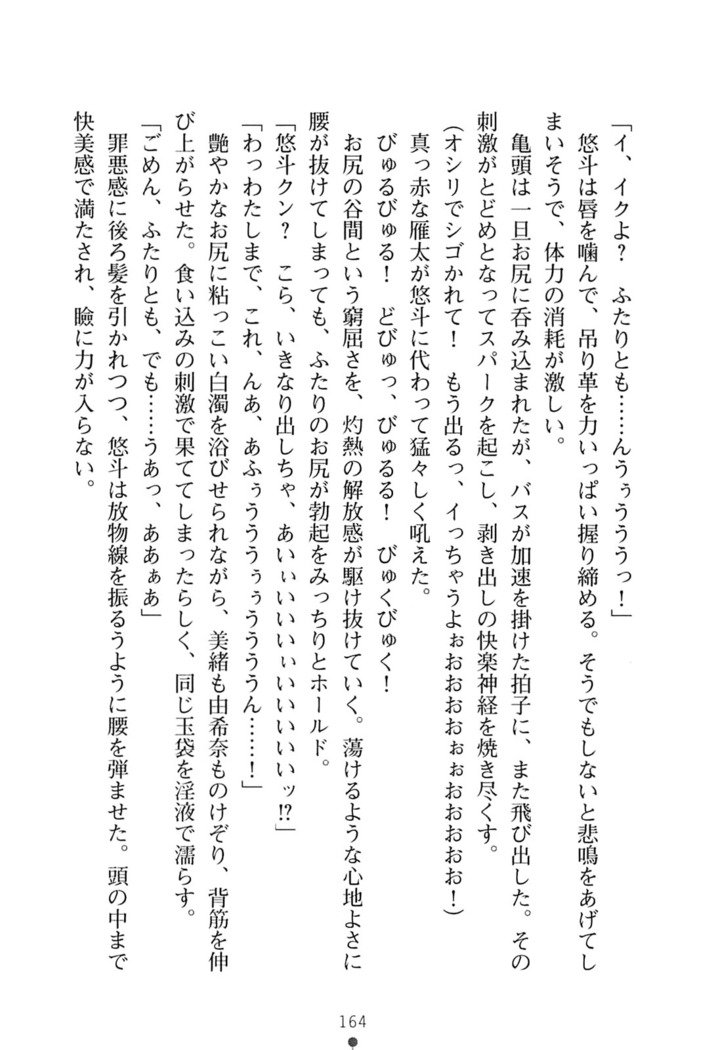 「イ、イクよ？　ふたりとも……んうぅううっ！」
　悠斗は唇を噛んで、吊り革を力いっぱい握り締める。そうでもしないと悲鳴をあげてし
まいそうで、体力の消耗が激しい。
　亀頭は一旦お尻に呑み込まれたが、バスが加速を掛けた拍子に、また飛び出した。その
刺激がとどめとなってスパークを起こし、剥き出しの快楽神経を焼き尽くす。
（オシリでシゴかれて！　もう出るっ、イっちゃうよぉおおおおぉぉおおおおお！）
　真っ赤な雁太が悠斗に代わって猛々しく吼えた。
　びゅるびゅる！　どびゅっ、びゅるる！　びゅくびゅく！
　お尻の谷間という窮屈さを、灼熱の解放感が駆け抜けていく。蕩けるような心地よさに
腰が抜けてしまっても、ふたりのお尻が勃起をみっちりとホールド。
「悠斗クン？　こら、いきなり出しちゃ、あいぃいいいぃいいいいいッ!?」
「わっわたしまで、これ、んあ、あふぅううぅぅうううん……！」
　艶やかなお尻に粘っこい白濁を浴びせられながら、美緒も由希奈ものけぞり、背筋を伸
び上がらせた。食い込みの刺激で果ててしまったらしく、同じ玉袋を淫液で濡らす。
「ごめん、ふたりとも、でも……うあっ、ああぁあ」
　罪悪感に後ろ髪を引かれつつ、悠斗は放物線を振るうように腰を弾ませた。頭の中まで
快美感で満たされ、瞼に力が入らない。
164